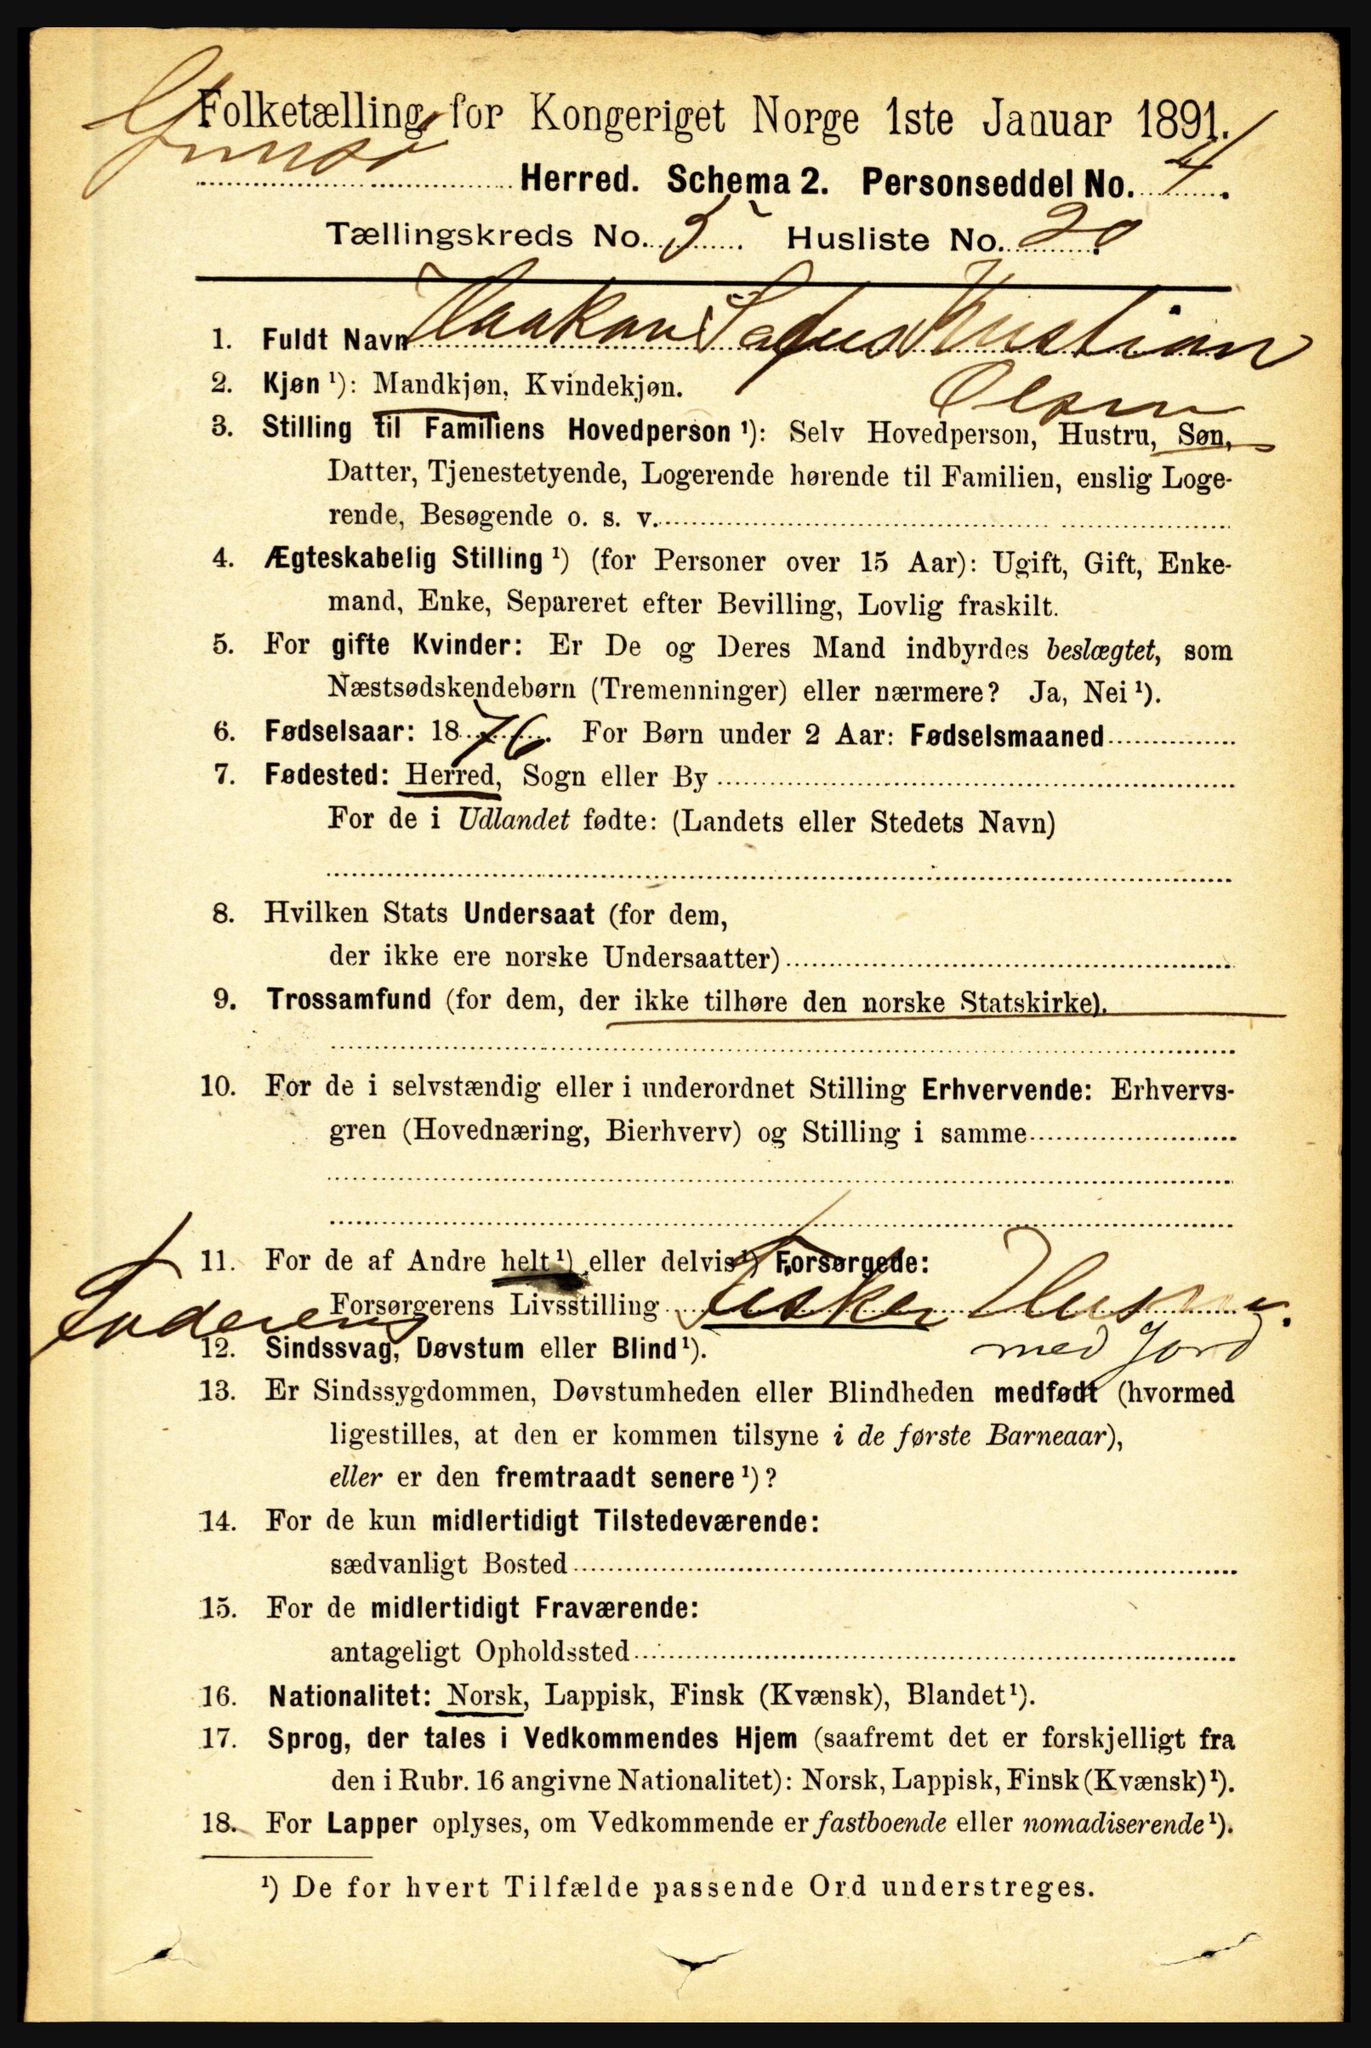 Folketælling for Kongeriget Norge 1ste Januar 1891.
Gimsø Herred. Schema 2. Personseddel No. 4.
Tællingskreds No. 5. Husliste No. 20
1. Fuldt Navn Haakon Kristian
Olsen
2. Kjøn ¹): Mandkjøn, Kvindekjøn.
3. Stilling til Familiens Hovedperson ¹): Selv Hovedperson, Hustru, Søn,
Datter, Tjenestetyende, Logerende hørende til Familien, enslig Loge-
rende, Besøgende o. s. v.
4. Ægteskabelig Stilling ¹) (for Personer over 15 Aar): Ugift, Gift, Enke-
mand, Enke, Separeret efter Bevilling, Lovlig fraskilt.
5. For gifte Kvinder: Er De og Deres Mand indbyrdes beslægtet, som
Næstsødskendebørn (Tremenninger) eller nærmere? Ja, Nei ¹).
6. Fødselsaar: 1876. For Børn under 2 Aar: Fødselsmaaned
7. Fødested: Herred, Sogn eller By
For de i Udlandet fødte: (Landets eller Stedets Navn)
8. Hvilken Stats Undersaat (for dem,
der ikke ere norske Undersaatter)
9. Trossamfund (for dem, der ikke tilhøre den norske Statskirke).
10. For de i selvstændig eller i underordnet Stilling Erhvervende: Erhvervs-
gren (Hovednæring, Bierhverv) og Stilling i samme
11. For de af Andre helt ¹) eller delvis ¹) Forsørgede:
Faderens Forsørgerens Livsstilling Fisker Husm.
med Jord
12. Sindssvag, Døvstum eller Blind ¹).
13. Er Sindssygdommen, Døvstumheden eller Blindheden medfødt (hvormed
ligestilles, at den er kommen tilsyne i de første Barneaar),
eller er den fremtraadt senere ¹)?
14. For de kun midlertidigt Tilstedeværende:
sædvanligt Bosted
15. For de midlertidigt Fraværende:
antageligt Opholdssted
16. Nationalitet: Norsk, Lappisk, Finsk (Kvænsk), Blandet ¹).
17. Sprog, der tales i Vedkommendes Hjem (saafremt det er forskjelligt fra
den i Rubr. 16 angivne Nationalitet): Norsk, Lappisk, Finsk (Kvænsk) ¹).
18. For Lapper oplyses, om Vedkommende er fastboende eller nomadiserende ¹).
¹) De for hvert Tilfælde passende Ord understreges.